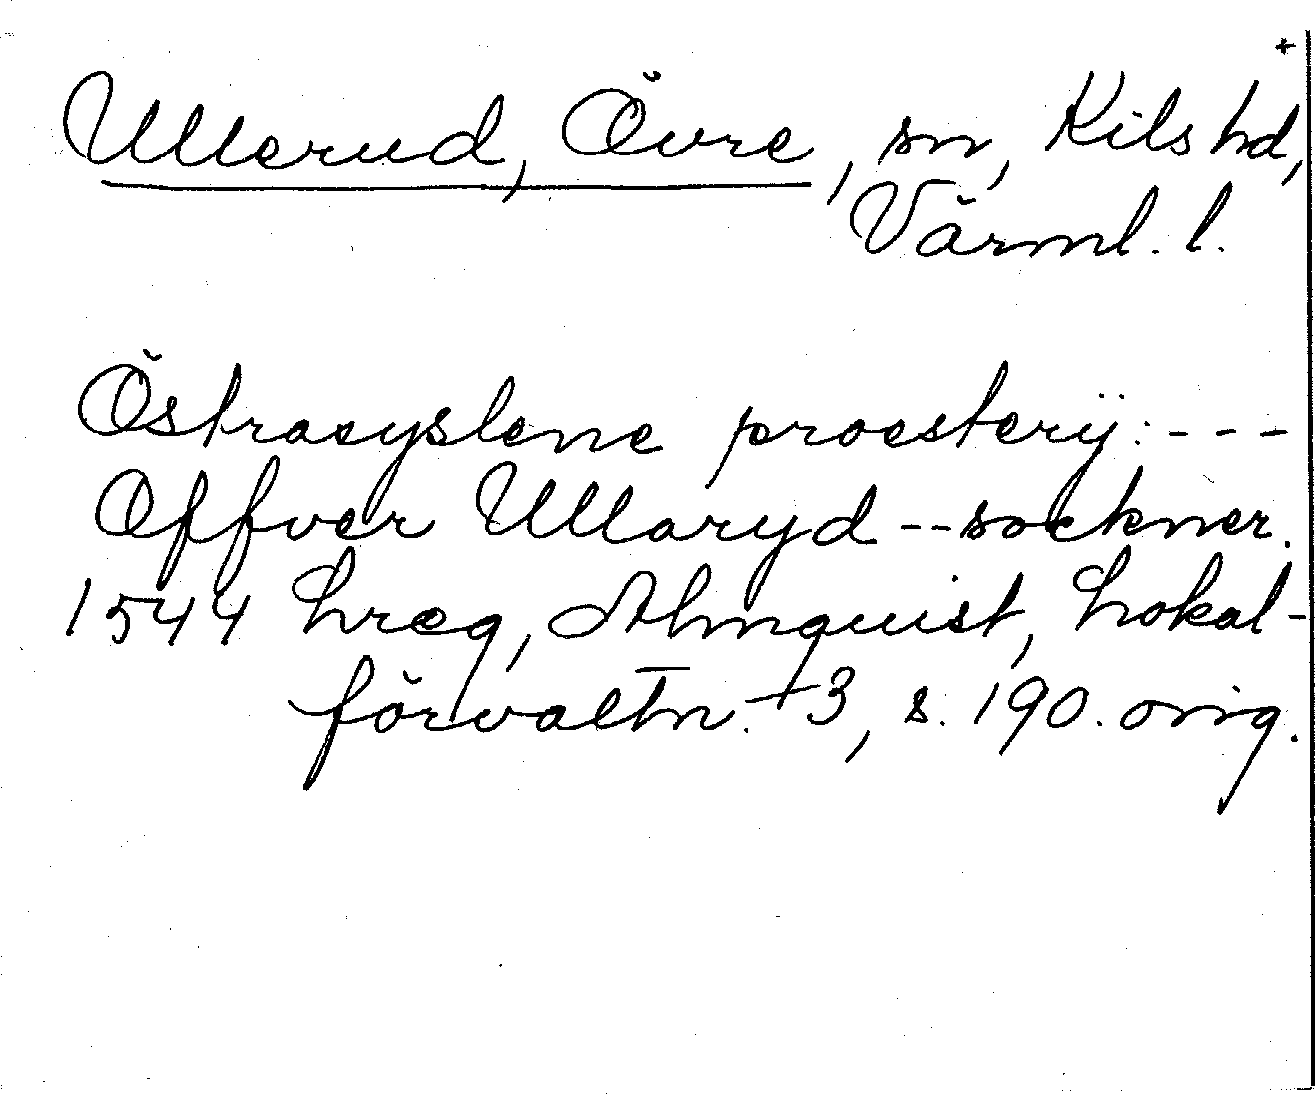 +
Ullerud, Övre, sn, Kils hd,
Värml. l.
Östrasyslene proesterÿ: ---
Offver Ullaryd -- sockner.
1544 Lreg, Almquist, Lokal-
förvaltn. 3, s. 190. orig.